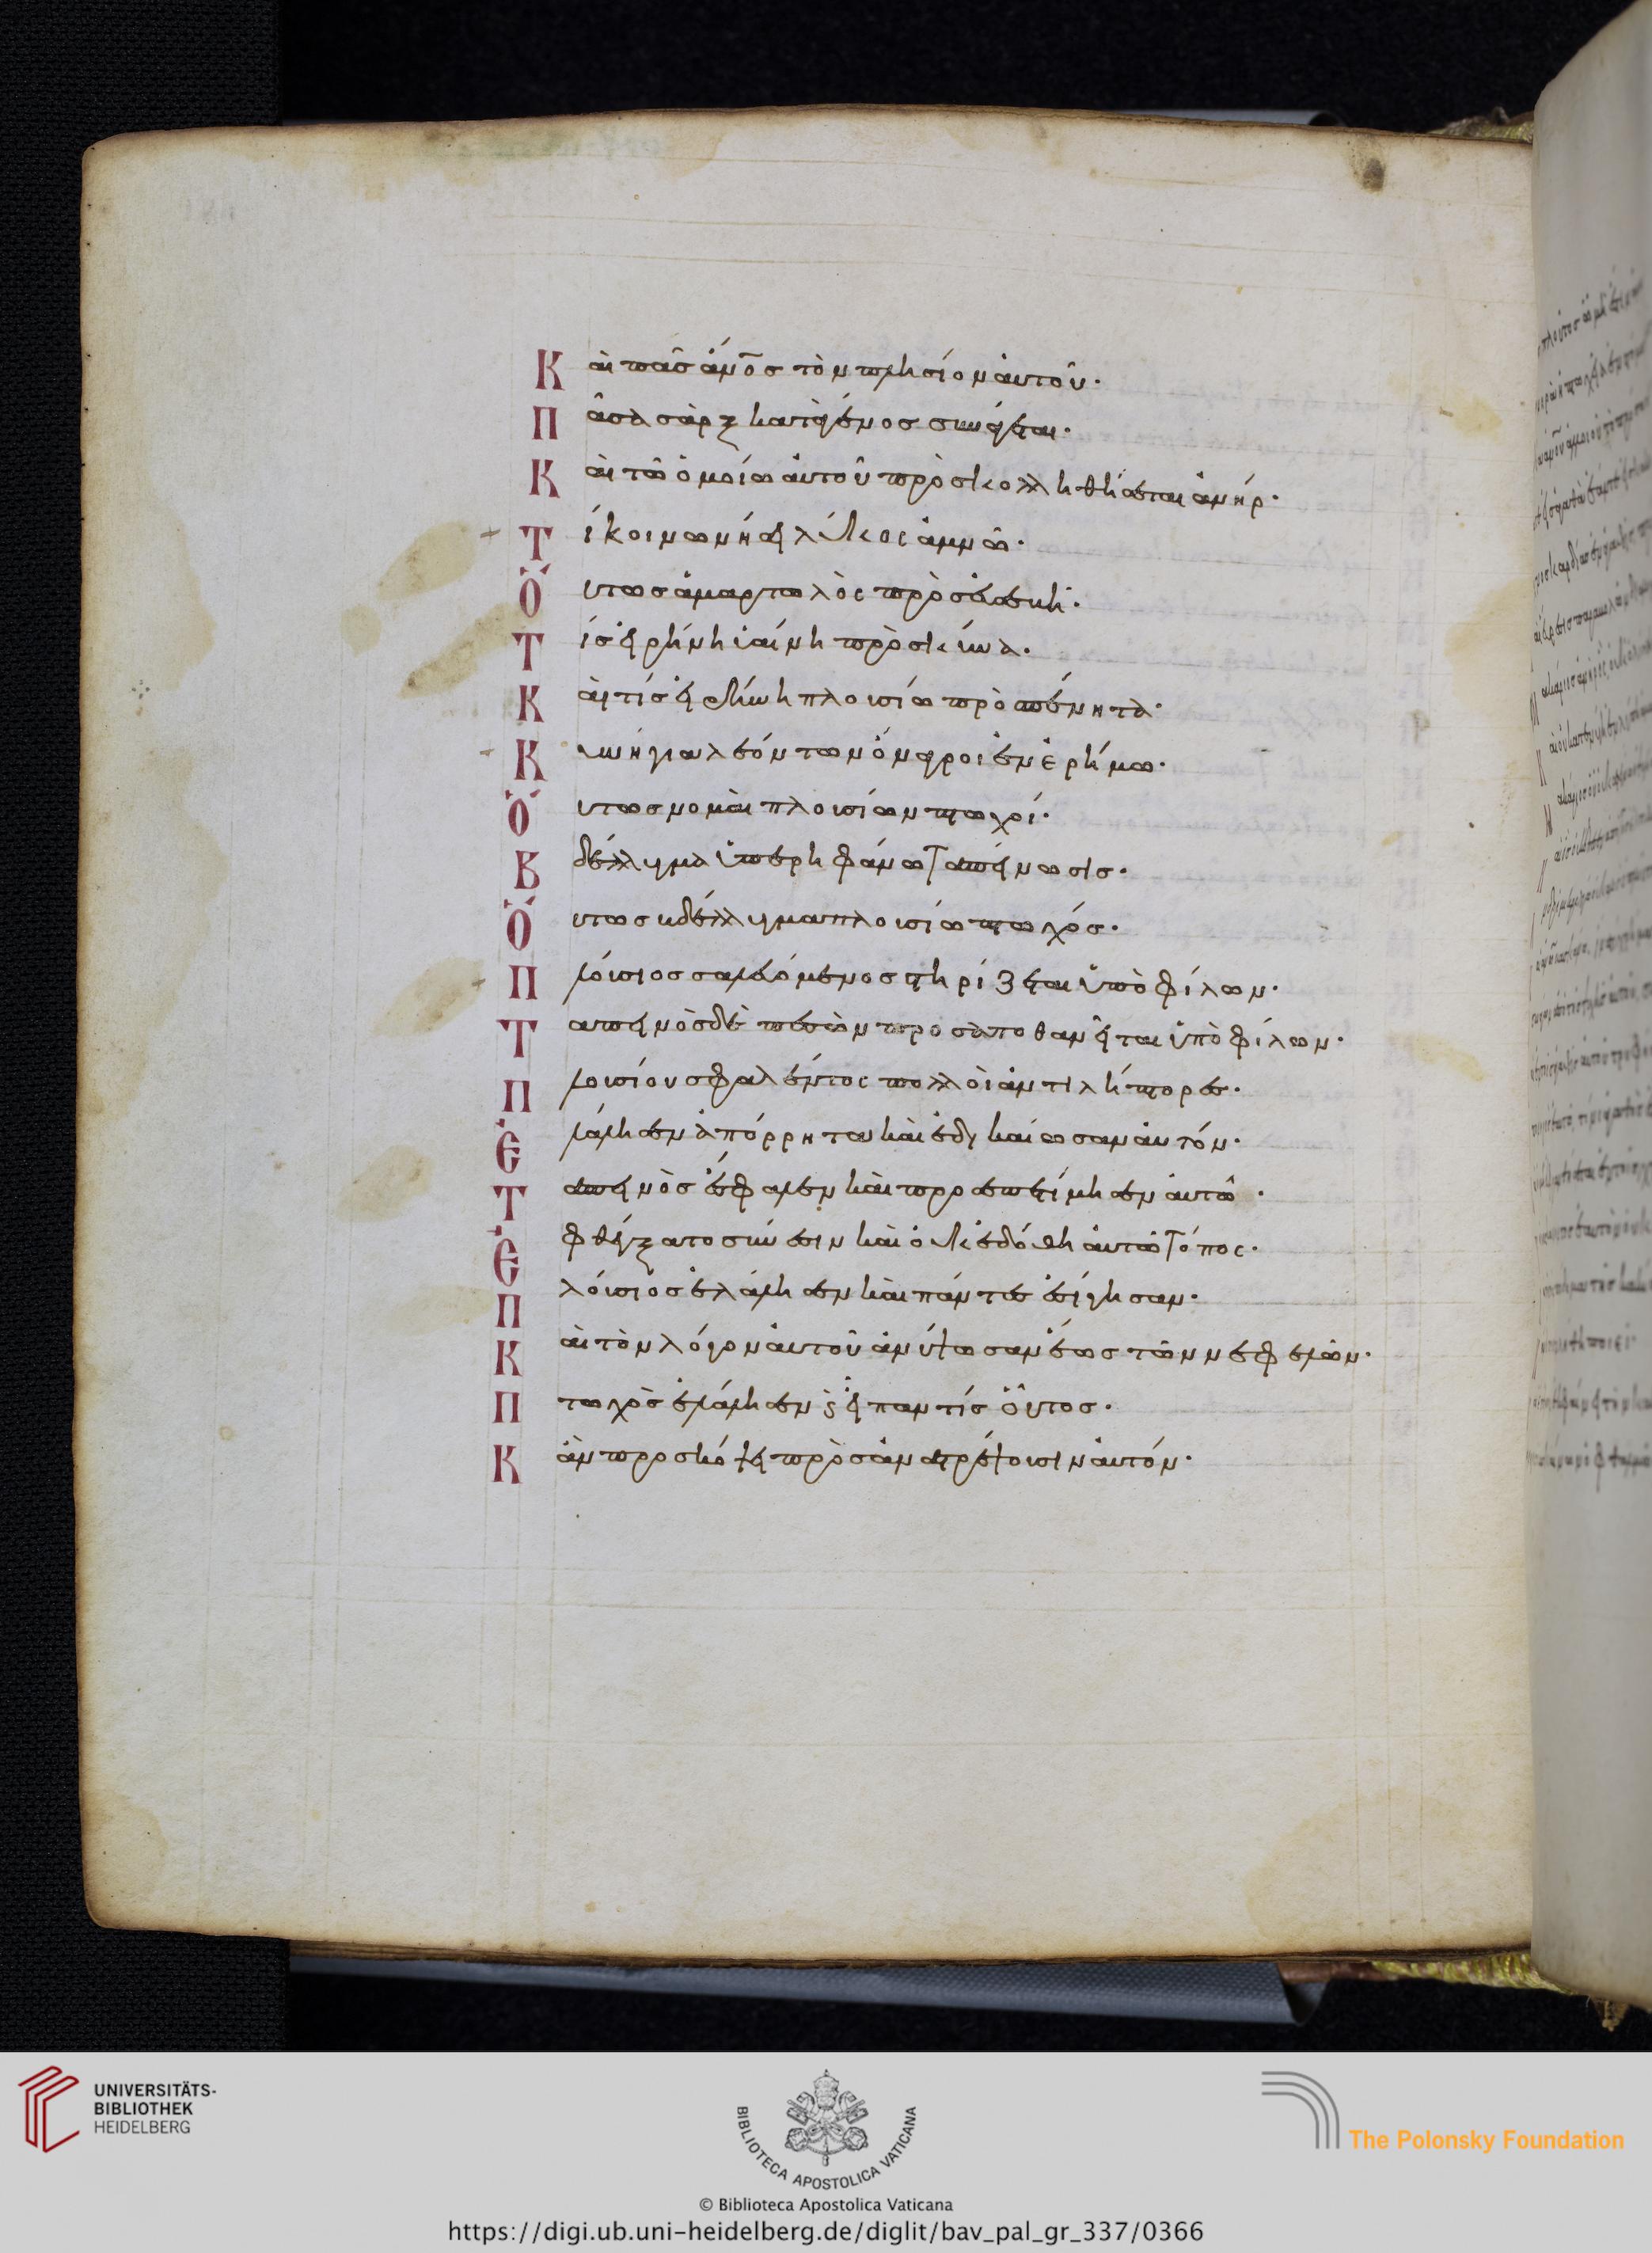 Καὶ πᾶς ἄνος τὸν πλησίον αὐτοῦ·
Πᾶσα σὰρξ κατὰ γένος συνάγεται·
Καὶ τῶ ὁμοίω αὐτοῦ προσκολληθήσεται ἀνήρ·
Τί κοινωνήσει λύκος ἀμνῶ·
Ὅυτως ἁμαρτωλὸς πρὸς εὐσεβῆ·
Τίς εἰρήνη ὑαίνη πρὸς κύνα·
Καὶ τίς εἰρήνη πλουσίω πρὸς πένητα·
Κυνήγια λεόντων ὄναγροι ἐν ἐρήμω·
Ὅυτως νομαὶ πλουσίων πτωχοί·
Βδέλυγμα ὑπερηφάνω ταπείνωσις·
Ὅυτως βδέλυγμα πλουσίω πτωχός·
Πλούσιος σαλευόμενος στηρίζεται ὑπὸ φίλων·
Ταπεινὸς δὲ πεσὼν προσαποθανεῖται ὑπὸ φίλων·
Πλουσίου σφαλέντος πολλοὶ ἀντιλήπτορες·
Ἐλάλησεν ἀπόρρητα καὶ ἐδικαίωσαν αὐτόν·
Ταπεινὸς ἔσφαλεν καὶ προσεπετίμησεν αὐτῶ·
Ἐφθέγξατο σύνεσιν καὶ οὐκ ἐδόθη αὐτῶ τόπος·
Πλούσιος ἐλάλησεν καὶ πάντες ἐσίγησαν·
Καὶ τὸν λόγον αὐτοῦ ἀνύψωσαν ἕως τῶν νεφελῶν·
Πτωχὸς ἐλάλησεν καὶ εἶπαν τίς οὗτος·
Κἂν προσκόψει προσανατρέψουσιν αὐτόν·
UNIVERSITÄTS-
BIBLIOTHEK
HEIDELBERG
BIBLIOTECA APOSTOLICA VATICANA
The Polonsky Foundation
© Biblioteca Apostolica Vaticana
https://digi.ub.uni-heidelberg.de/diglit/bav_pal_gr_337/0366